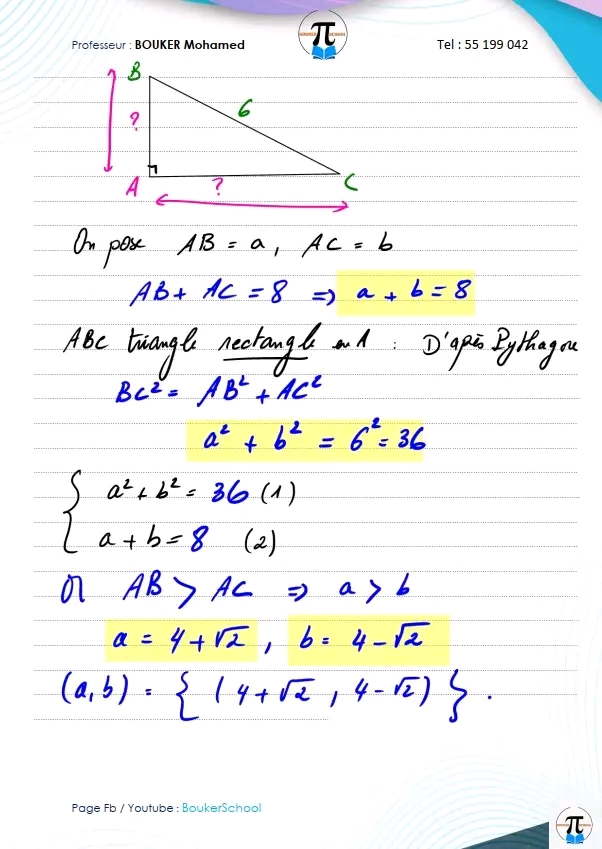 Professeur : BOUKER Mohamed
π
Tel : 55 199 042
B
6
?
A
?
C
On pose AB = a, AC = b
AB + AC = 8 ⇒ a + b = 8
ABC triangle rectangle en A : D'après Pythagore
BC² = AB² + AC²
a² + b² = 6² = 36
{ a² + b² = 36 (1)
a + b = 8 (2)
Or AB > AC ⇒ a > b
a = 4 + √2 , b = 4 - √2
(a, b) = { (4 + √2 , 4 - √2) } .
Page Fb / Youtube : BoukerSchool
π